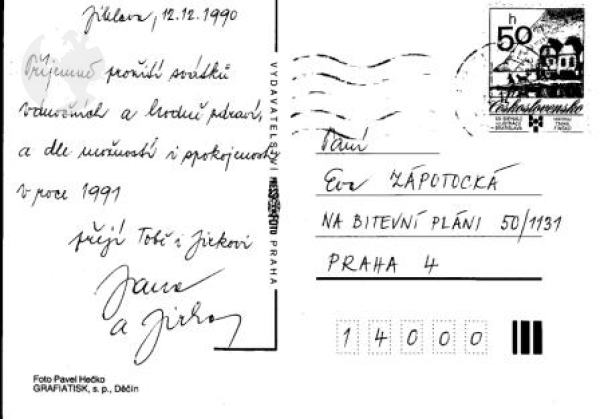 Jihlava, 12.12.1990
Příjemné prožití svátků
vánočních a hodně zdraví,
a dle možností i spokojenosti
v roce 1991
přejí Tobě i Jirkovi
Jana
a Jirka
Foto Pavel Hečko
GRAFIATISK, s. p., Děčín
VYDAVATELSTVÍ PRESSFOTO PRAHA
h
50
Československo
Paní
Eva ZÁPOTOCKÁ
NA BITEVNÍ PLÁNI 50/1131
PRAHA 4
14000